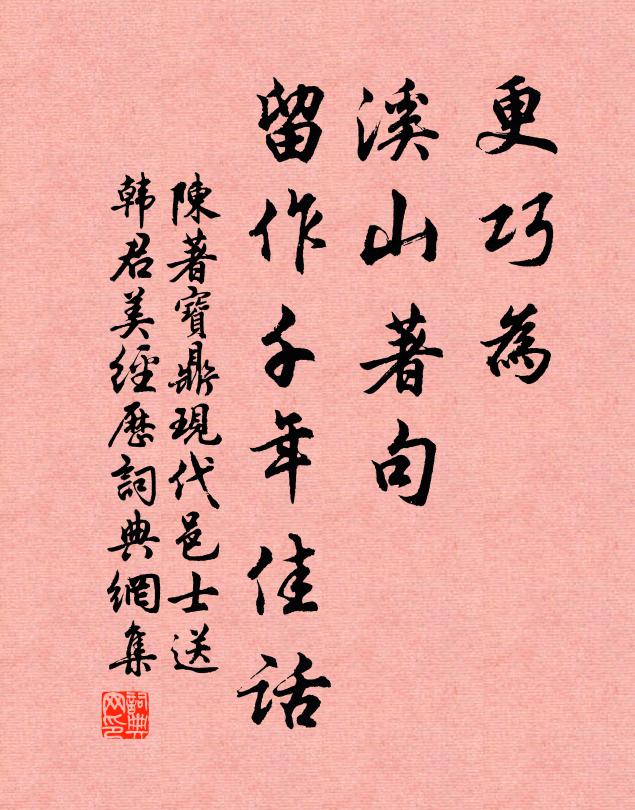 更巧為
溪山著句
留作千年佳話
陳著寶鼎現代邑士送
韩君美經歷詞典網集
詞典網印